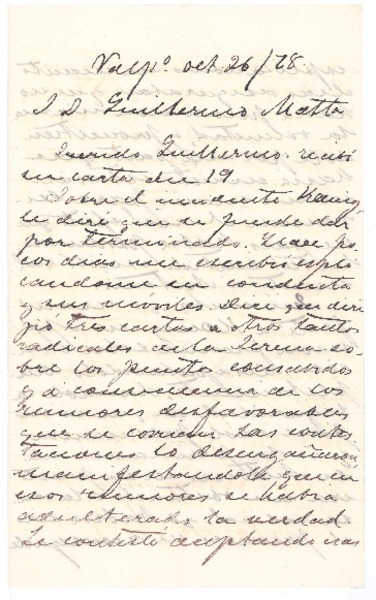 Valpº oct. 26/78
S. D. Guillermo Matta
Querido Guillermo: recibí
su carta del 19
Sobre el incidente
le diré que se puede dar
por terminado. Hace po
cos dias me escribió espli
candome su conducta
y sus moviles. Dice que diri
gió tres cartas a otros tantos
radicales de la Serena so
bre los puntos consabidos
y a consecuencia de los
rumores desfavorables
que se corrian. Las contes
taciones lo desengañaron
manifestandole que en
esos rumores se habia
adulterado la verdad.
Le contesté aceptando sus